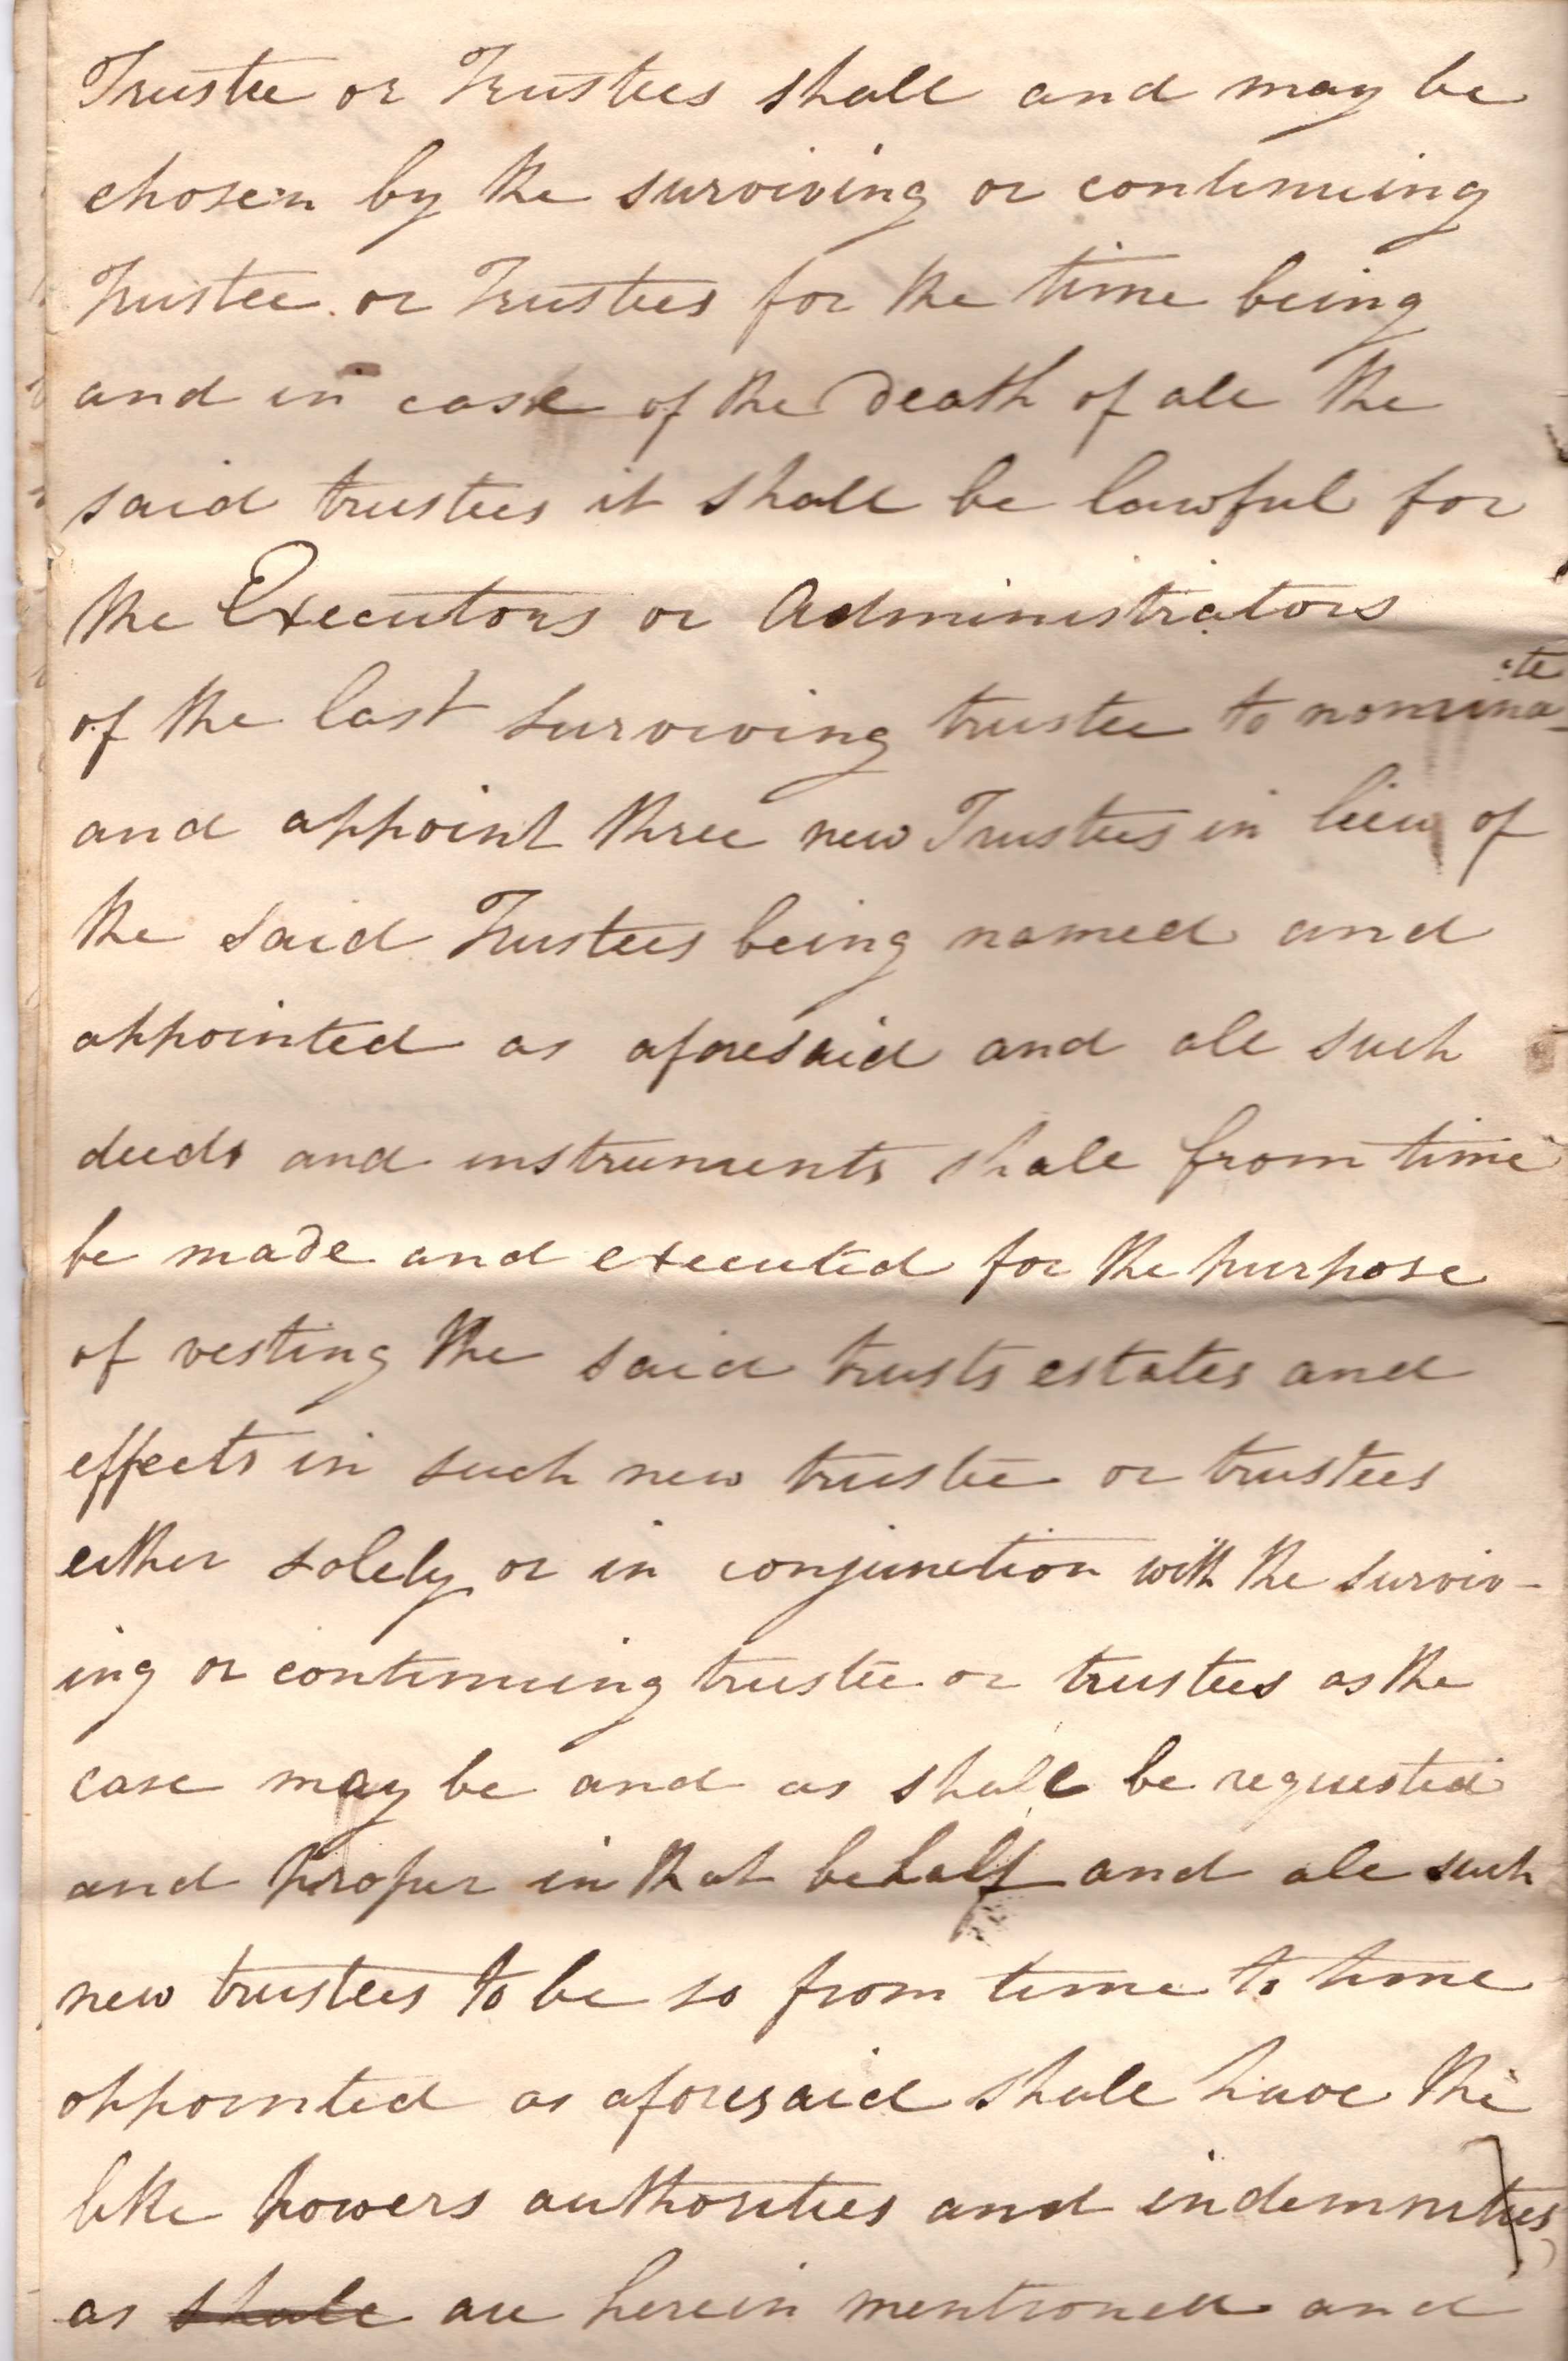 Trustee or Trustees shall and may be
chosen by the surviving or continuing
Trustee or Trustees for the time being
and in case of the Death of all the
said trustees it shall be lawful for
the Executors or Administrators
of the last surviving trustee to nomina-te
and appoint three new Trustees in lieu of
the said Trustees being named and
appointed as aforesaid and all such
deeds and instruments shall from time
be made and executed for the purpose
of vesting the said trusts estates and
effects in such new trustee or trustees
either solely or in conjunction with the surviv-
ing or continuing trustee or trustees as the
case may be and as shall be requested
and proper in that behalf and all such
new trustees to be so from time to time
appointed as aforesaid shall have the
like powers authorities and indemnities
as shall are herein mentioned and